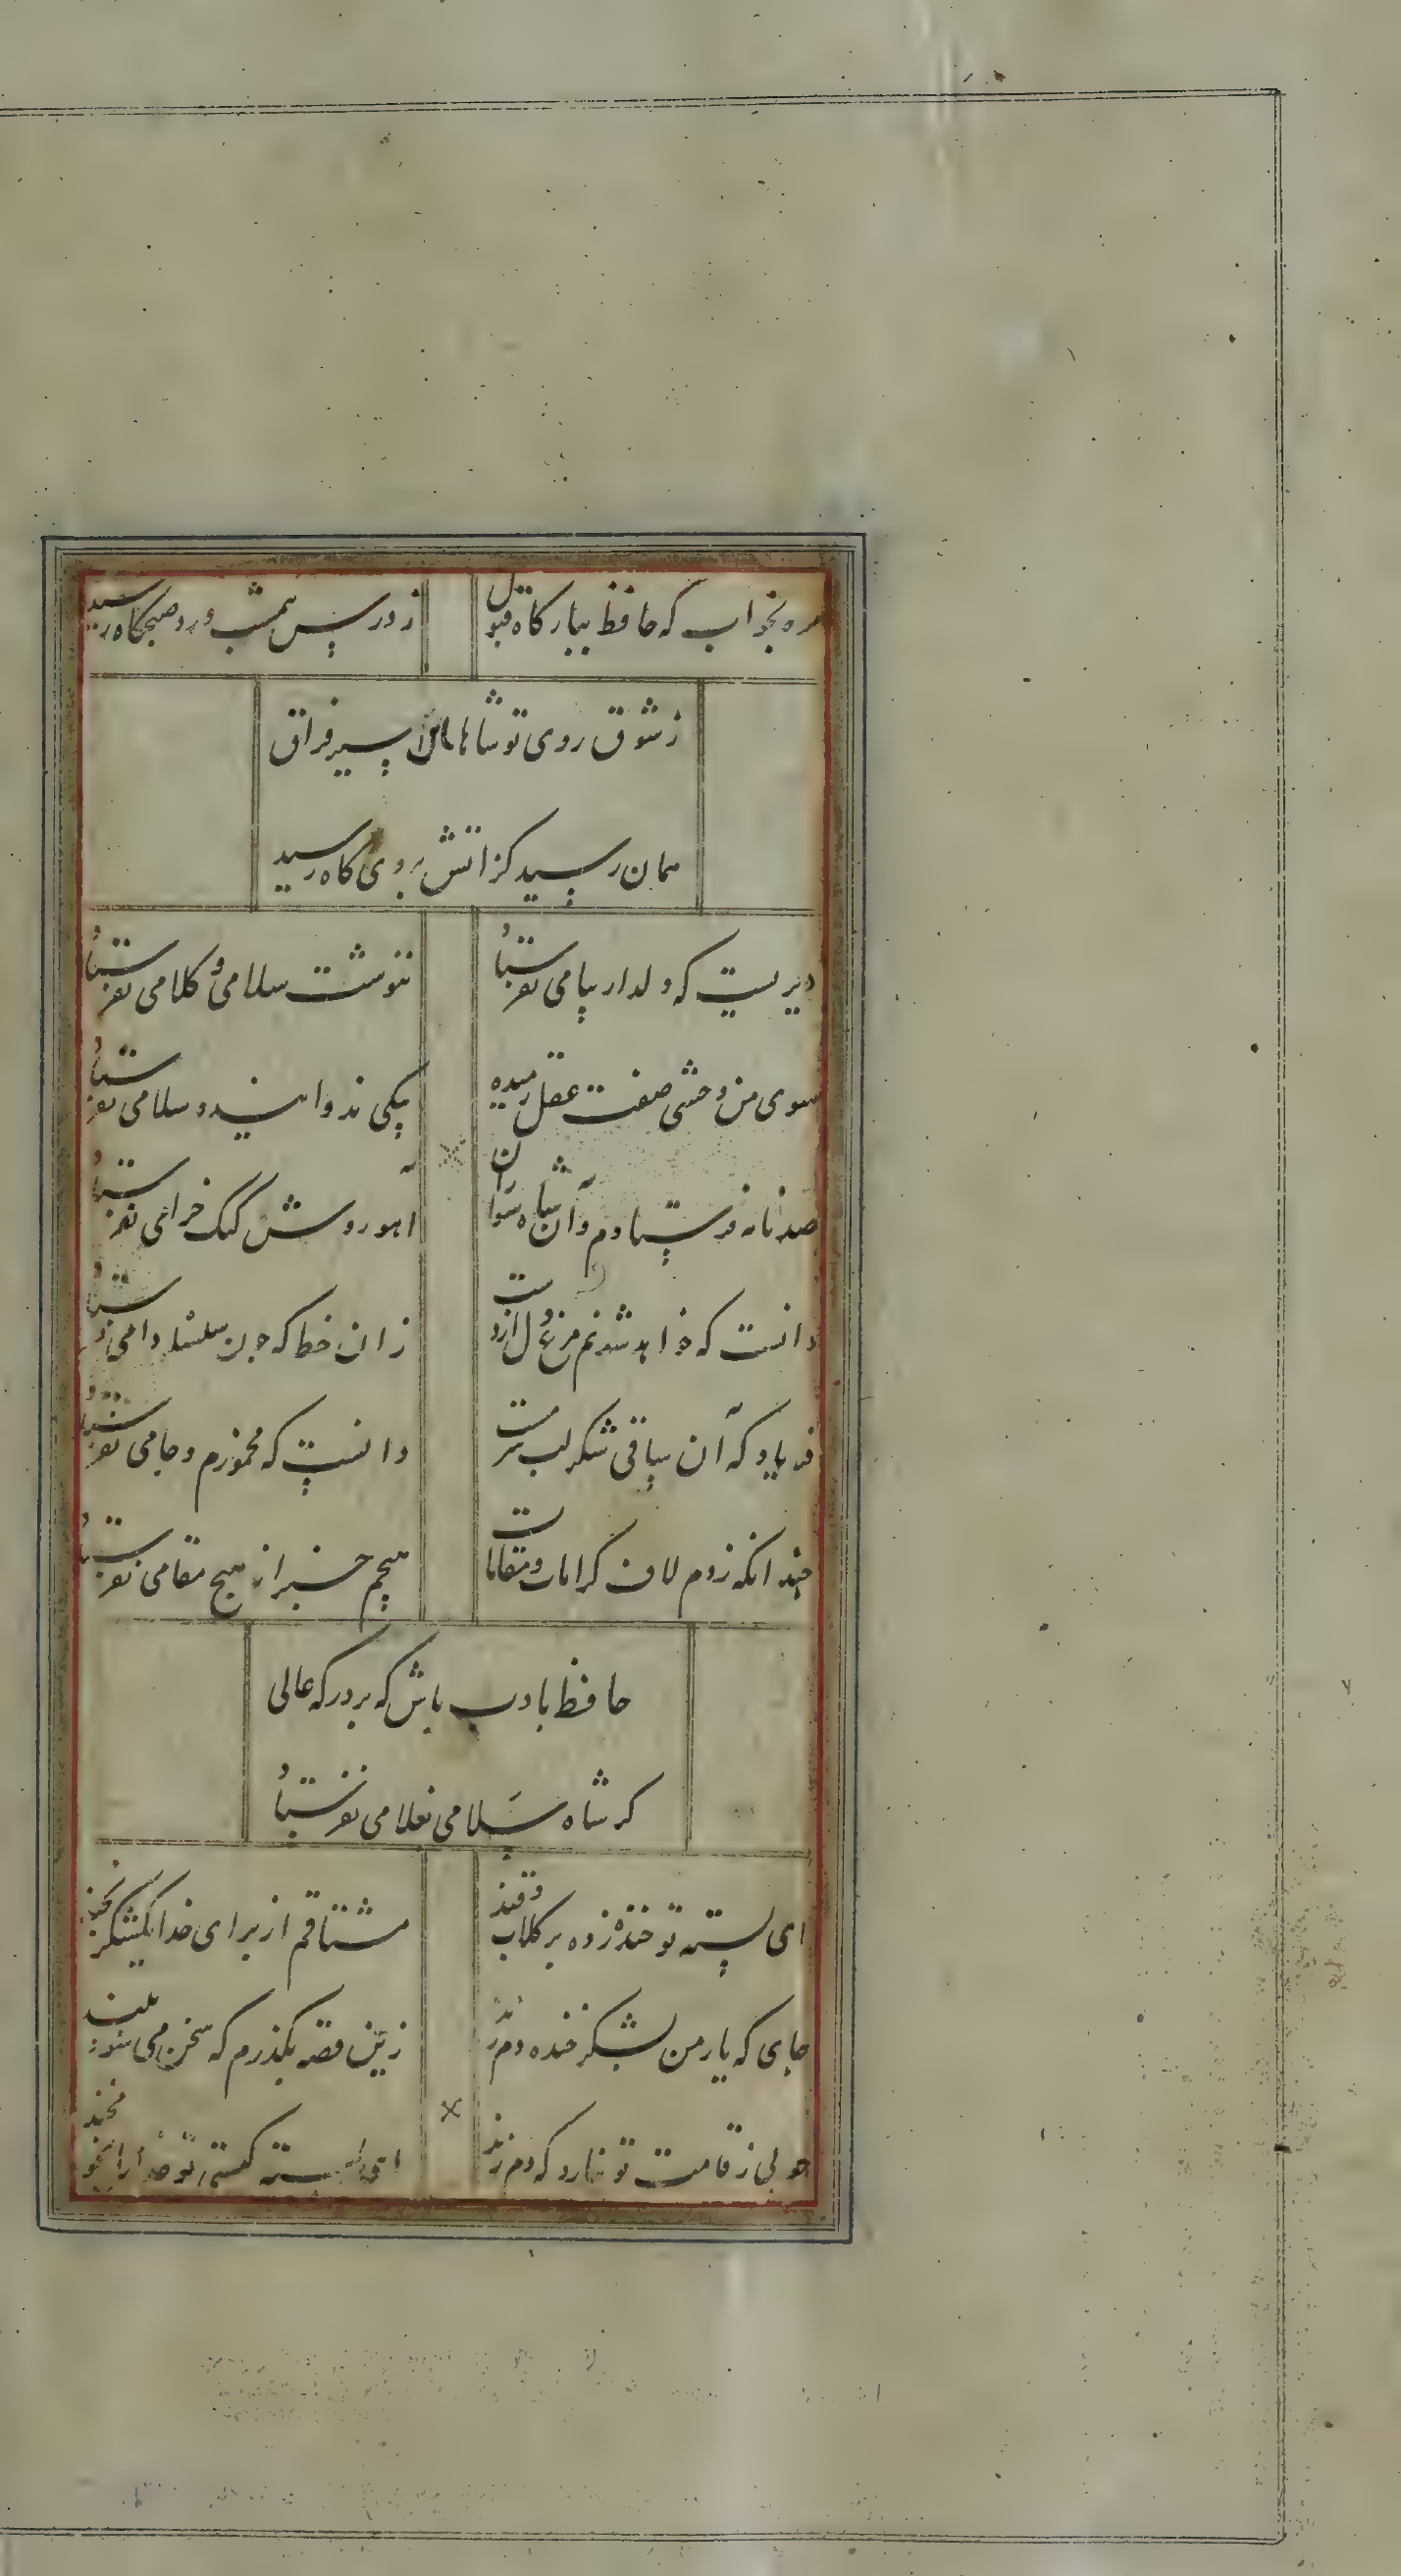 مرو بخواب که حافظ ببارکاه قبول
ز ورد نیم شب و درد صبحکاه رسید
ز شوق روی تو شاها باین اسیر فراق
همان رسید کز اتش بروی کاه رسید
دیریست که دلدار پیامی نفرستاد
ننوشت سلامی و کلامی نفرستاد
سوی من وحشی صفت عقل رمیده
پیکی ندوانید و سلامی نفرستاد
صد نامه فرستادم و آن شاه سواران
اهو روش کبک خرامی نفرستاد
دانست که خواهد شدنم مرغ دل از دست
زان خط که چون سلسله دامی نفرستاد
فریاد که آن ساقی شکر لب سرمست
دانست که مخمورم و جامی نفرستاد
چندانکه زدم لاف کرامات و مقامات
هیچم خبر از هیچ مقامی نفرستاد
حافظ بادب باش که بر درکه عالی
کر شاه سلامی بغلامی نفرستاد
ای پسته تو خنده زده بر کلاب و قند
مشتاقم از برای خدا یک شکر بخند
جای که یار من بشکر خنده دم زند
زین قصه بکذرم که سخن می شود بلند
طوبی ز قامت تو نیارد که دم زند
ای پسته کیستی تو خدا را بخود مخند